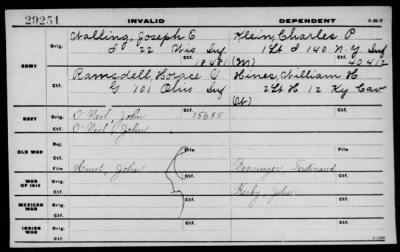 29251 INVALID DEPENDENT
ARMY
Orig. Walling, Joseph C Klein, Charles P
I 22 Wis Inf 1 Lt I 140 N.Y. Inf
Ctf. 18481 (M) Ctf. 40412
Orig. Ramsdell, Horace Hines, William H
G 101 Ohio Inf 2 Lt H 12 Ky Cav
Ctf. Ctf.
NAVY
Orig. O'Neil, John 15685
Ctf. O'Neil, John
OLD WAR
Rej.
Ctf.
File Hunt, John Ferdinand
WAR OF 1812
Orig. John
Ctf.
MEXICAN WAR
Orig.
Ctf.
INDIAN WAR
Orig.
Ctf.